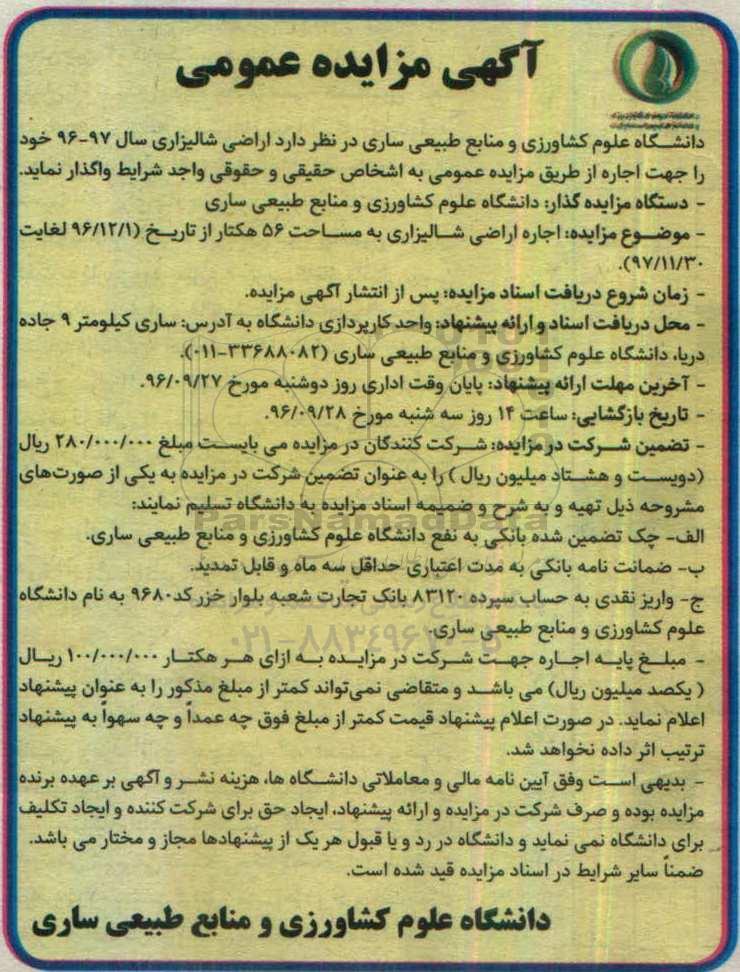 آگهی مزایده عمومی
دانشگاه علوم کشاورزی و منابع طبیعی ساری در نظر دارد اراضی شالیزاری سال ۹۷-۹۶ خود
را جهت اجاره از طریق مزایده عمومی به اشخاص حقیقی و حقوقی واجد شرایط واگذار نماید.
- دستگاه مزایده گذار: دانشگاه علوم کشاورزی و منابع طبیعی ساری
- موضوع مزایده: اجاره اراضی شالیزاری به مساحت ۵۶ هکتار از تاریخ (۹۶/۱۲/۱ لغایت
۹۷/۱۱/۳۰).
- زمان شروع دریافت اسناد مزایده: پس از انتشار آگهی مزایده.
- محل دریافت اسناد و ارائه پیشنهاد: واحد کارپردازی دانشگاه به آدرس: ساری کیلومتر ۹ جاده
دریا، دانشگاه علوم کشاورزی و منابع طبیعی ساری (۳۳۶۸۸۰۸۲-۰۱۱).
- آخرین مهلت ارائه پیشنهاد: پایان وقت اداری روز دوشنبه مورخ ۹۶/۰۹/۲۷.
- تاریخ بازگشایی: ساعت ۱۴ روز سه شنبه مورخ ۹۶/۰۹/۲۸.
- تضمین شرکت در مزایده: شرکت کنندگان در مزایده می بایست مبلغ ۲۸۰/۰۰۰/۰۰۰ ریال
(دویست و هشتاد میلیون ریال ) را به عنوان تضمین شرکت در مزایده به یکی از صورت‌های
مشروحه ذیل تهیه و به شرح و ضمیمه اسناد مزایده به دانشگاه تسلیم نمایند:
ParsNamadData
الف- چک تضمین شده بانکی به نفع دانشگاه علوم کشاورزی و منابع طبیعی ساری.
ب- ضمانت نامه بانکی به مدت اعتباری حداقل سه ماه و قابل تمدید.
ج- واریز نقدی به حساب سپرده ۸۳۱۲۰ بانک تجارت شعبه بلوار خزر کد۹۶۸۰ به نام دانشگاه
علوم کشاورزی و منابع طبیعی ساری.
- مبلغ پایه اجاره جهت شرکت در مزایده به ازای هر هکتار ۱۰۰/۰۰۰/۰۰۰ ریال
( یکصد میلیون ریال) می باشد و متقاضی نمی‌تواند کمتر از مبلغ مذکور را به عنوان پیشنهاد
اعلام نماید. در صورت اعلام پیشنهاد قیمت کمتر از مبلغ فوق چه عمداً و چه سهواً به پیشنهاد
ترتیب اثر داده نخواهد شد.
- بدیهی است وفق آیین نامه مالی و معاملاتی دانشگاه ها، هزینه نشر و آگهی بر عهده برنده
مزایده بوده و صرف شرکت در مزایده و ارائه پیشنهاد، ایجاد حق برای شرکت کننده و ایجاد تکلیف
برای دانشگاه نمی نماید و دانشگاه در رد و یا قبول هر یک از پیشنهادها مجاز و مختار می باشد.
ضمناً سایر شرایط در اسناد مزایده قید شده است.
دانشگاه علوم کشاورزی و منابع طبیعی ساری